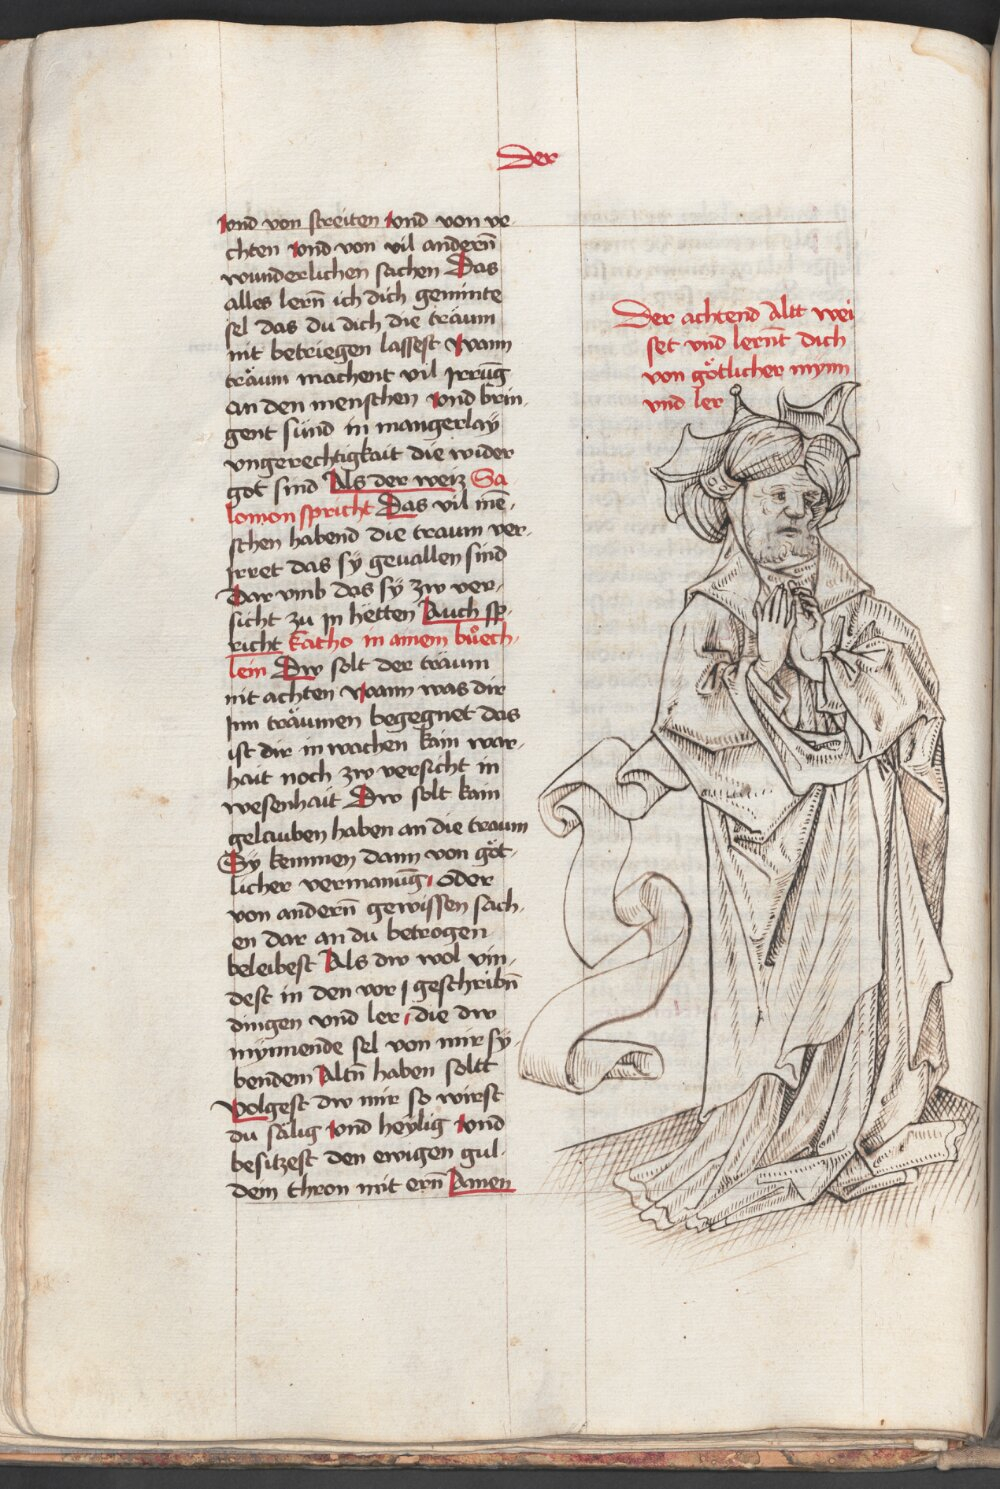 Der
vnd von streiten vnd von ve-
chten vnd von vil andern̄
wunderlichen sachen Das
alles lern̄ ich dich geminte
sel das du dich die träum
nit betriegen lassest Wann
träum machent vil Irrūg
an den menschen vnd brin-
gent sünd in mangerlaÿ
vngerechtigkait die wider
got sind Als der weiz Sa
lomon spricht Das vil mē-
schen habend die traum ver-
Irret das sÿ geuallen sind
Dar vmb das sÿ zw ver-
sicht zu jn hetten Auch sp
richt Katho in ainem bůech-
lein Dw solt der träum
nit achten Wann was dir
Inn träumen begegnet das
ist dir in wachen kain war-
hait noch zw versicht in
wesenhait Dw solt kain
gelauben haben an die traum
Sÿ kemmen dann von göt-
licher vermanūg, oder
von andern̄ gewissen sach-
en dar an du betrogen
beleibest Als dw wol vin-
dest in den vor geschribn̄
dingen vnd ler, die dw
mynnende sel von mir sÿ-
bendem Altn̄ haben soltt
Volgest dw mir so wirst
du sälig vnd heÿlig vnd
besitzest den ewigen gul-
dem thron mit ern̄ Amen
Der achtend Altt wei
set vnd lernt̄ dich
von götlicher mÿnn
vnd ler